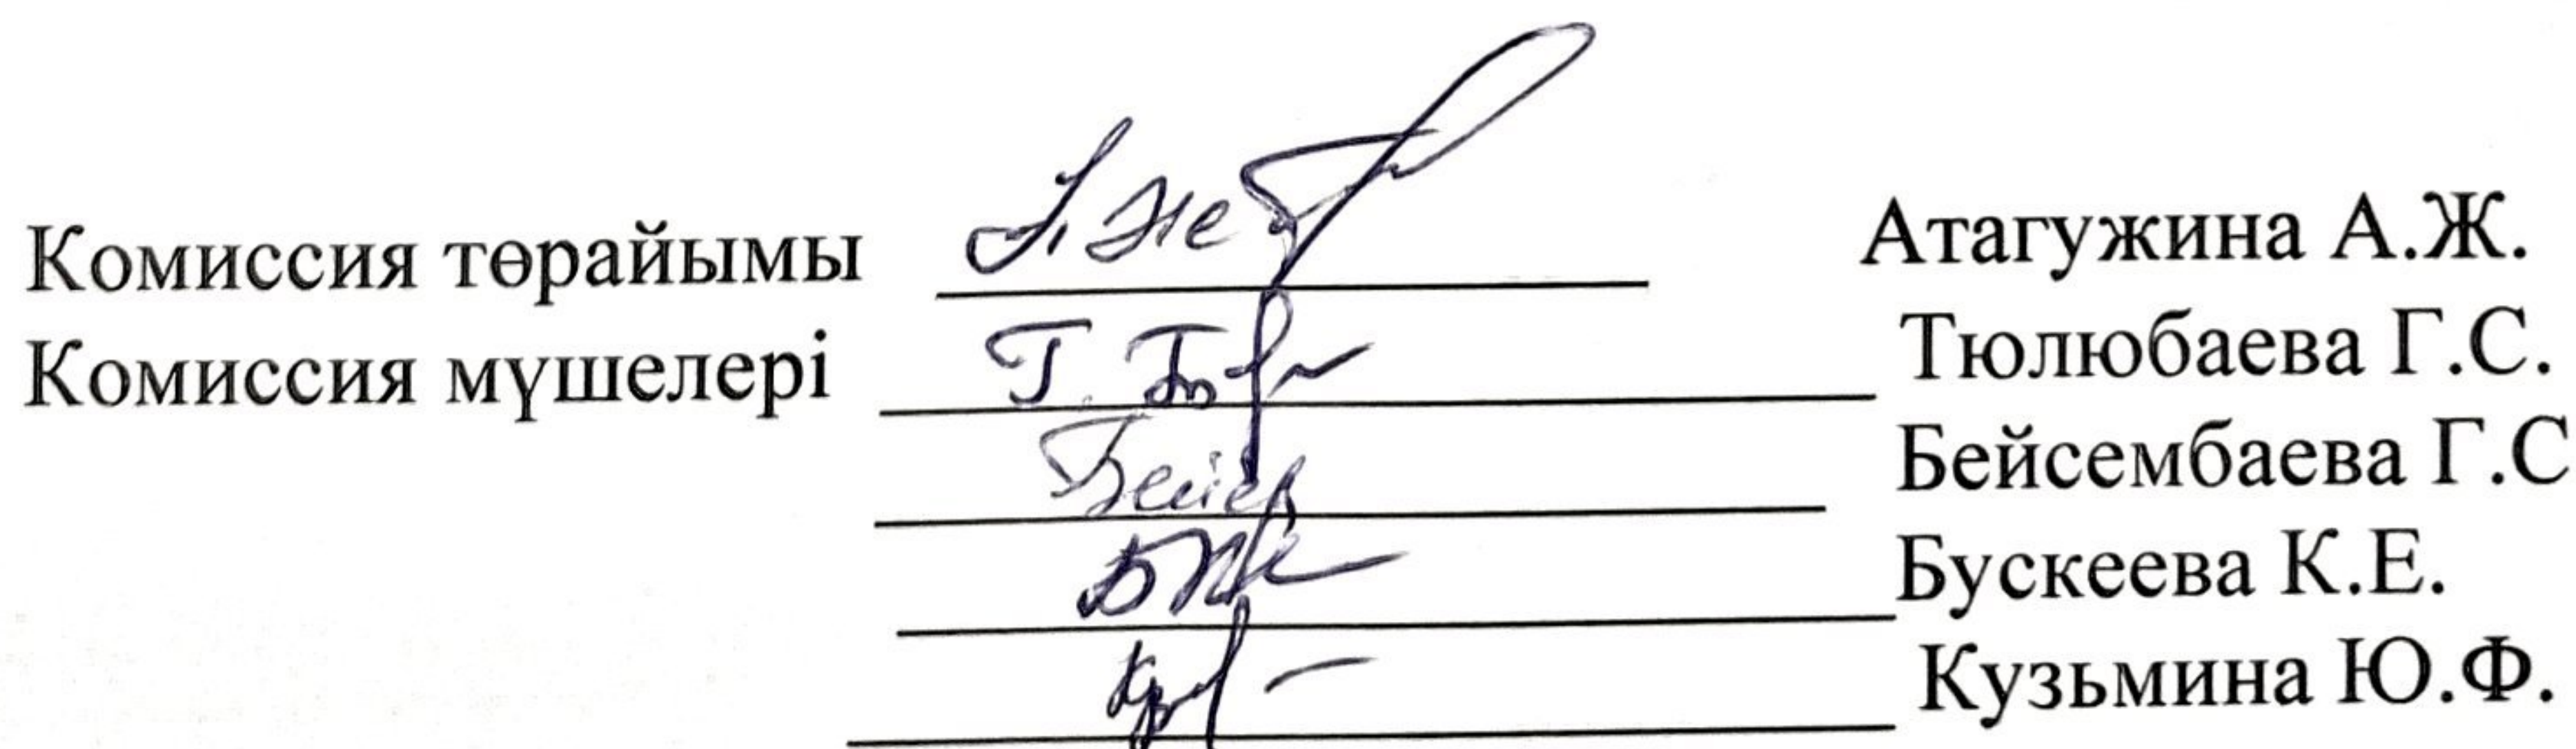 Комиссия төрайымы Атагужина А.Ж.
Комиссия мүшелері Тюлюбаева Г.С.
Бейсембаева Г.С
Бускеева К.Е.
Кузьмина Ю.Ф.